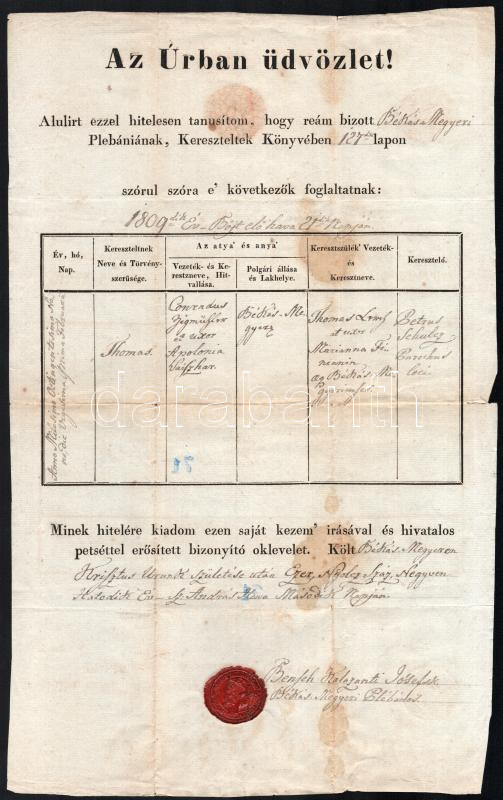 Az Úrban üdvözlet!
Alulirt ezzel hitelesen tanusítom, hogy reám bizott Békás Megyeri
Plebániának, Kereszteltek Könyvében 127dik lapon
szórul szóra e' következők foglaltatnak:
1809dik Év Böjt elő hava 21dik Napján.
Év, hó,
Nap.
Kereszteltnek
Neve és Törvény-
szerüsége.
Az atya' és anya'
Vezeték- és Ke-
resztneve, Hit-
vallása.
Polgári állása
és Lakhelye.
Keresztszülék' Vezeték-
és
Keresztneve.
Keresztelő.
Thomas.
Conradus
et uxor
Apolonia
Békás Me-
gyer
Thomas
et uxor
Marianna
Békás Me-
Petrus
Schulcz
Parochus
Loci
Minek hitelére kiadom ezen saját kezem' irásával és hivatalos
petséttel erősített bizonyító oklevelet. Költ Békás Megyeren
Krisztus Urunk születése után Ezer, Nyolcz Száz, Negyven
Második Év Sz András Hava Második Napján.
Bensch Kalazanti József
Békás Megyeri Plébános.
darabanth